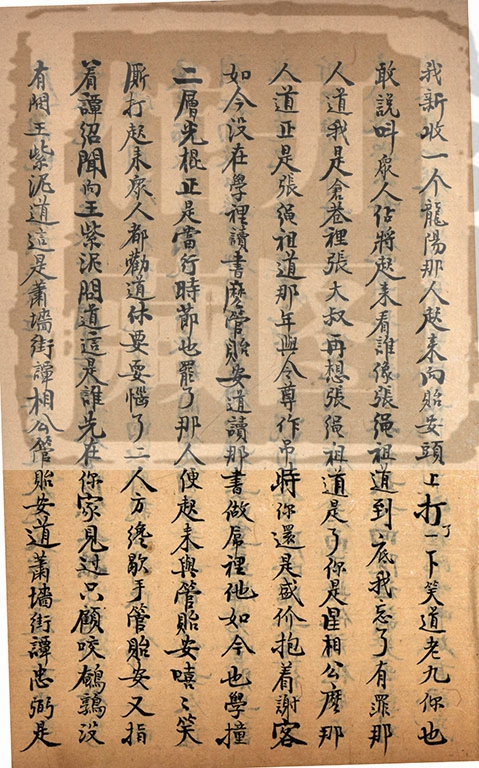 我新收一个龍陽那人起来向貽安頭上打了一下笑道老九你也
敢説叫衆人佔將起来看誰像張䋲祖道到底我忘了有罪那
人道我是倉巷裡張大叔再想張䋲祖道是了你是星相公麽那
人道正是張䋲祖道那年與令尊作吊時你還是盛价抱着謝客
如今没在學裡讀書麽管貽安道讀那書做屌裡他如今也學撞
二層光棍正是當行時節也罷了那人便起来與管貽安嘻〻笑
厮打起来衆人都勸道休要耍惱了二人方纔歇手管貽安又指
着譚紹聞向王紫泥問道這是誰先在你家見過只顧咬鵪鶉没
有問王紫泥道這是蕭墻街譚相公管貽安道蕭墻街譚忠弼是